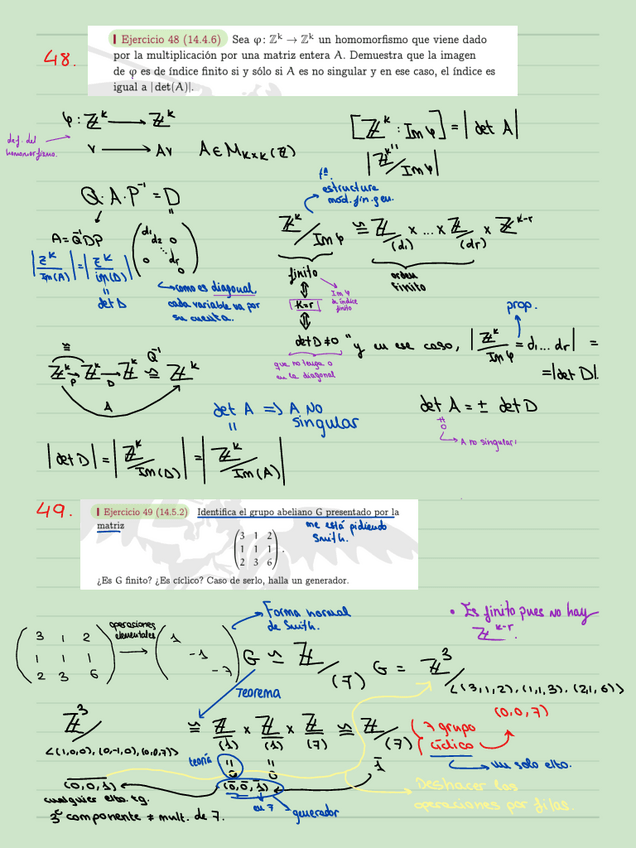 48.
Ejercicio 48 (14.4.6) Sea φ: ℤᵏ → ℤᵏ un homomorfismo que viene dado
por la multiplicación por una matriz entera A. Demuestra que la imagen
de φ es de índice finito si y sólo si A es no singular y en ese caso, el índice es
igual a |det(A)|.
φ: ℤᵏ ⟶ ℤᵏ
def. del
homomorfismo.
v ⟶ Av A ∈ M_{k×k}(ℤ)
[ℤᵏ : Im φ] = |det A|
"
|ℤᵏ/Im φ|
Q·A·P⁻¹ = D
"
A = Q⁻¹DP
d₁
d₂ 0
⋱
0 dᵣ
0
|ℤᵏ/Im(A)| = |ℤᵏ/im(D)|
"
det D
como es diagonal
cada variable va por
su cuenta.
estructura
mod. fin. gen.
ℤᵏ/Im φ ≅ ℤ/(d₁) × ... × ℤ/(dr) × ℤ^{k-r}
finito
orden
finito
⇕
k=r
Im φ
índice
finito
⇕
det D ≠ 0
que no tenga 0
en la diagonal
"y en ese caso, |ℤᵏ/Im φ = d₁ ... dr| =
prop.
= |det D|.
≅
ℤᵏ → ℤᵏ → ℤᵏ ≅ ℤᵏ
P D Q⁻¹
A
det A ⇒ A no
singular
"
det A = ± det D
0
A no singular
|det D| = |ℤᵏ/Im(D)| = |ℤᵏ/Im(A)|
49.
Ejercicio 49 (14.5.2) Identifica el grupo abeliano G presentado por la
matriz
me está pidiendo
Smith.
3 1 2
1 1 1
2 3 6
¿Es G finito? ¿Es cíclico? Caso de serlo, halla un generador.
3 1 2
1 1 1
2 3 6
operaciones
elementales
1
-1
-7
Forma normal
de Smith.
• Es finito pues no hay
ℤ^{k-r}.
G ≃ ℤ/(7)
G = ℤ³/⟨(3,1,2), (1,1,3), (2,1,6)⟩
Teorema
(0,0,7)
ℤ³/⟨(1,0,0), (0,-1,0), (0,0,7)⟩ ≅ ℤ/(1) × ℤ/(1) × ℤ/(7) ≅ ℤ/(7)
7 grupo
cíclico
un solo elto.
teoría
(0,0,1)
(0̄,0̄,1̄)
1̄
cualquier elto. tg.
3ª componente ≠ mult. de 7.
en 7
generador
Deshacer las
operaciones por filas.